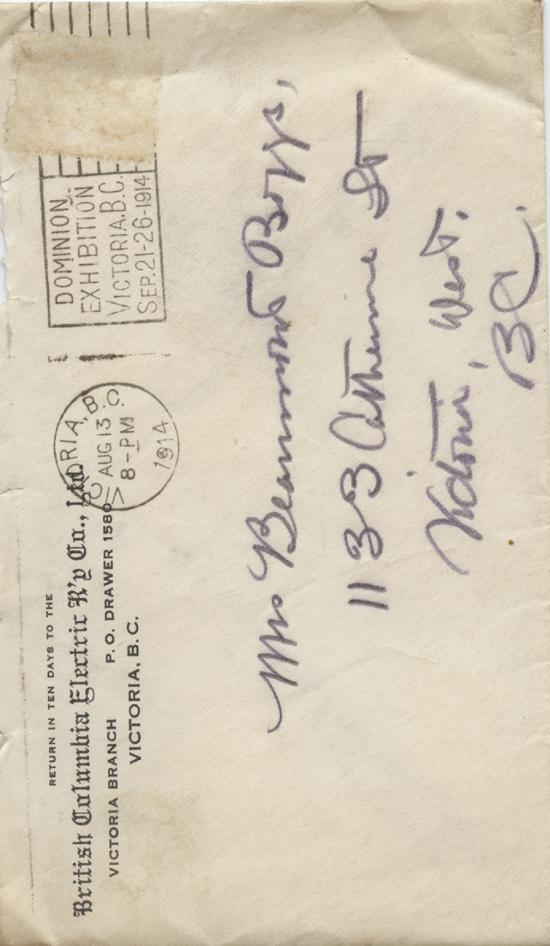 RETURN IN TEN DAYS TO THE
British Columbia Electric R'y Co., Ltd.
VICTORIA BRANCH P. O. DRAWER 1580
VICTORIA, B.C.
B.C.
AUG 13
8-PM
1914
DOMINION
EXHIBITION
VICTORIA, B.C.
SEP. 21-26-1914
Mrs Beaumont Boggs,
1133 Catherine St
Victoria, West.
BC.